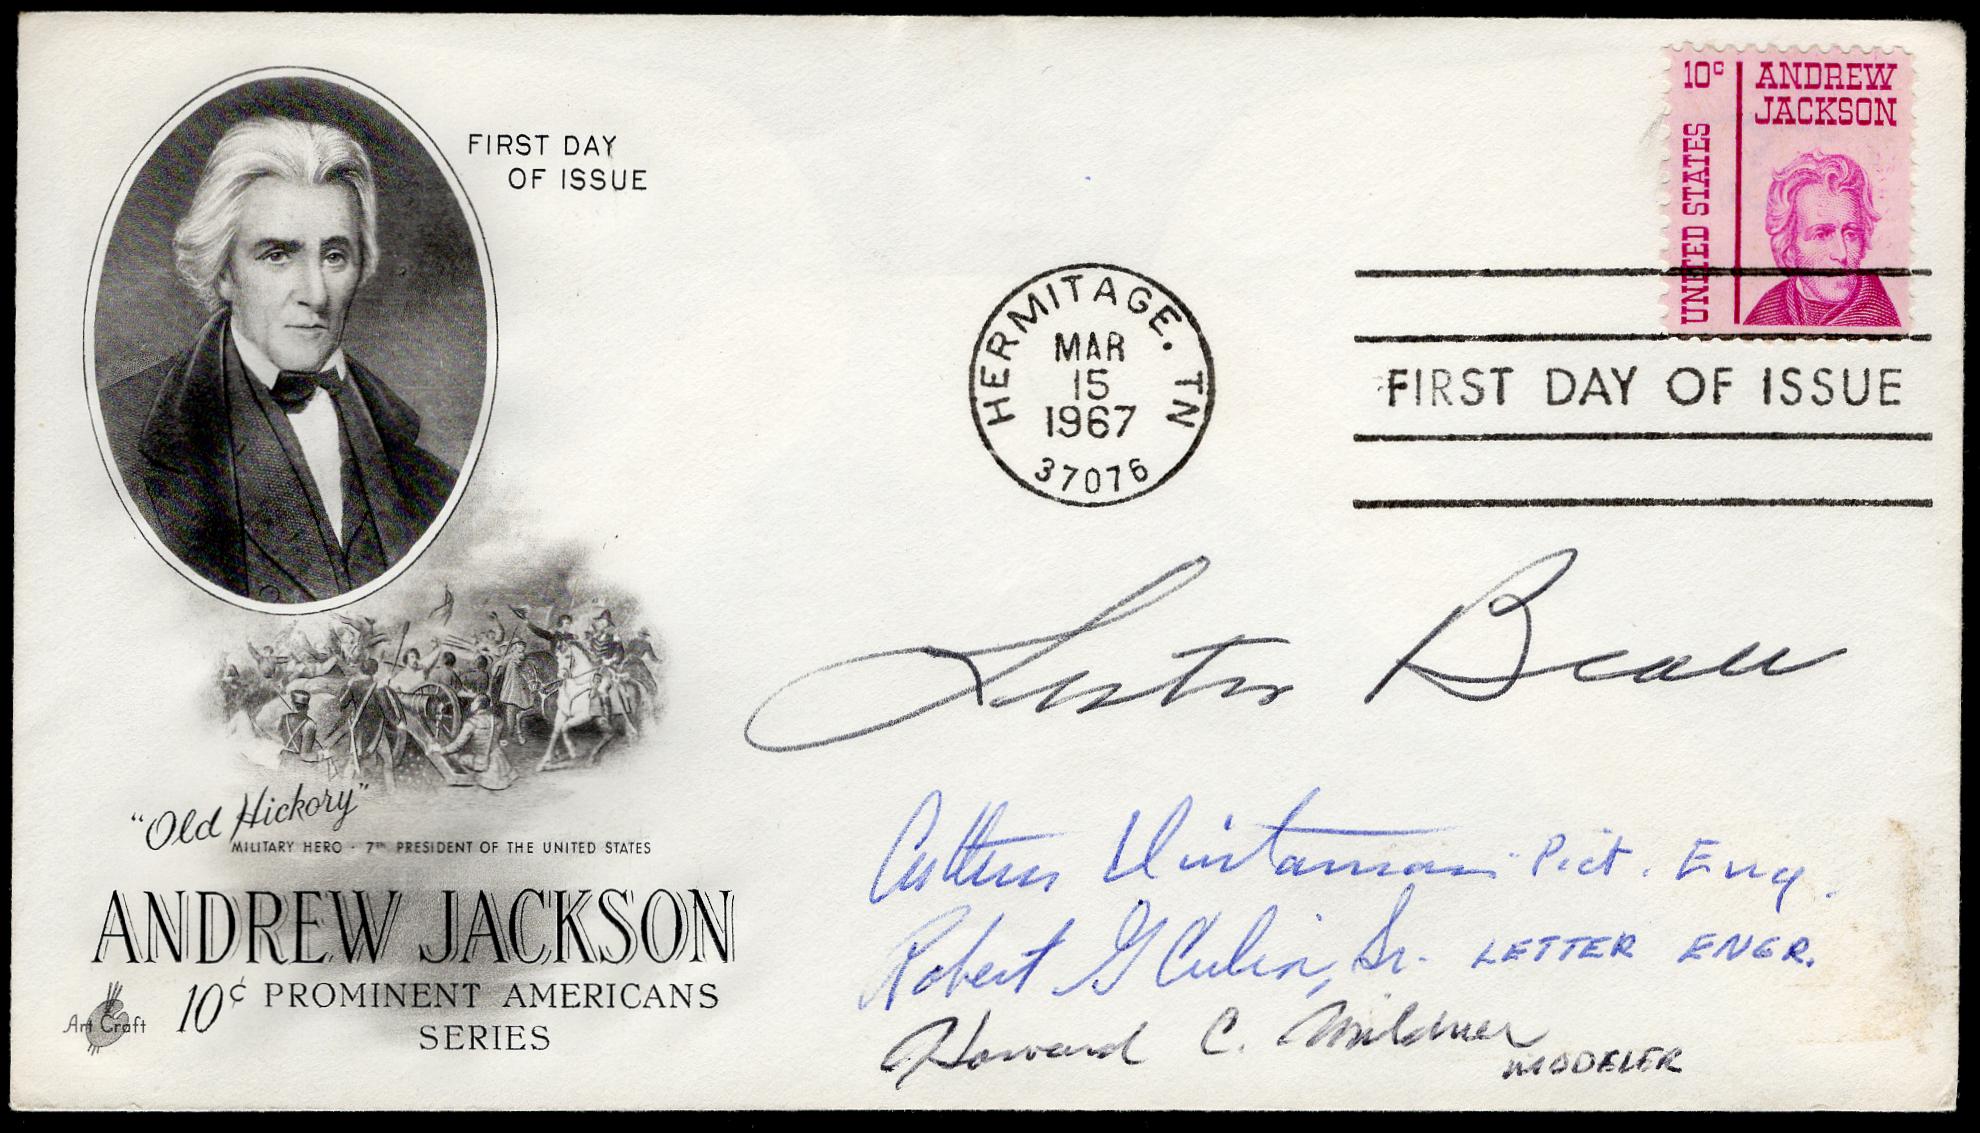 FIRST DAY
OF ISSUE
10c ANDREW
JACKSON
UNITED STATES
HERMITAGE, TN
MAR
15
1967
37076
FIRST DAY OF ISSUE
Lester Beall
Arthur Dintaman - Pict. Eng.
Robert G Culin, Sr. LETTER ENGR.
Howard C. Mildner
MODELER
"Old Hickory"
MILITARY HERO · 7TH PRESIDENT OF THE UNITED STATES
ANDREW JACKSON
10¢ PROMINENT AMERICANS
SERIES
Art Craft